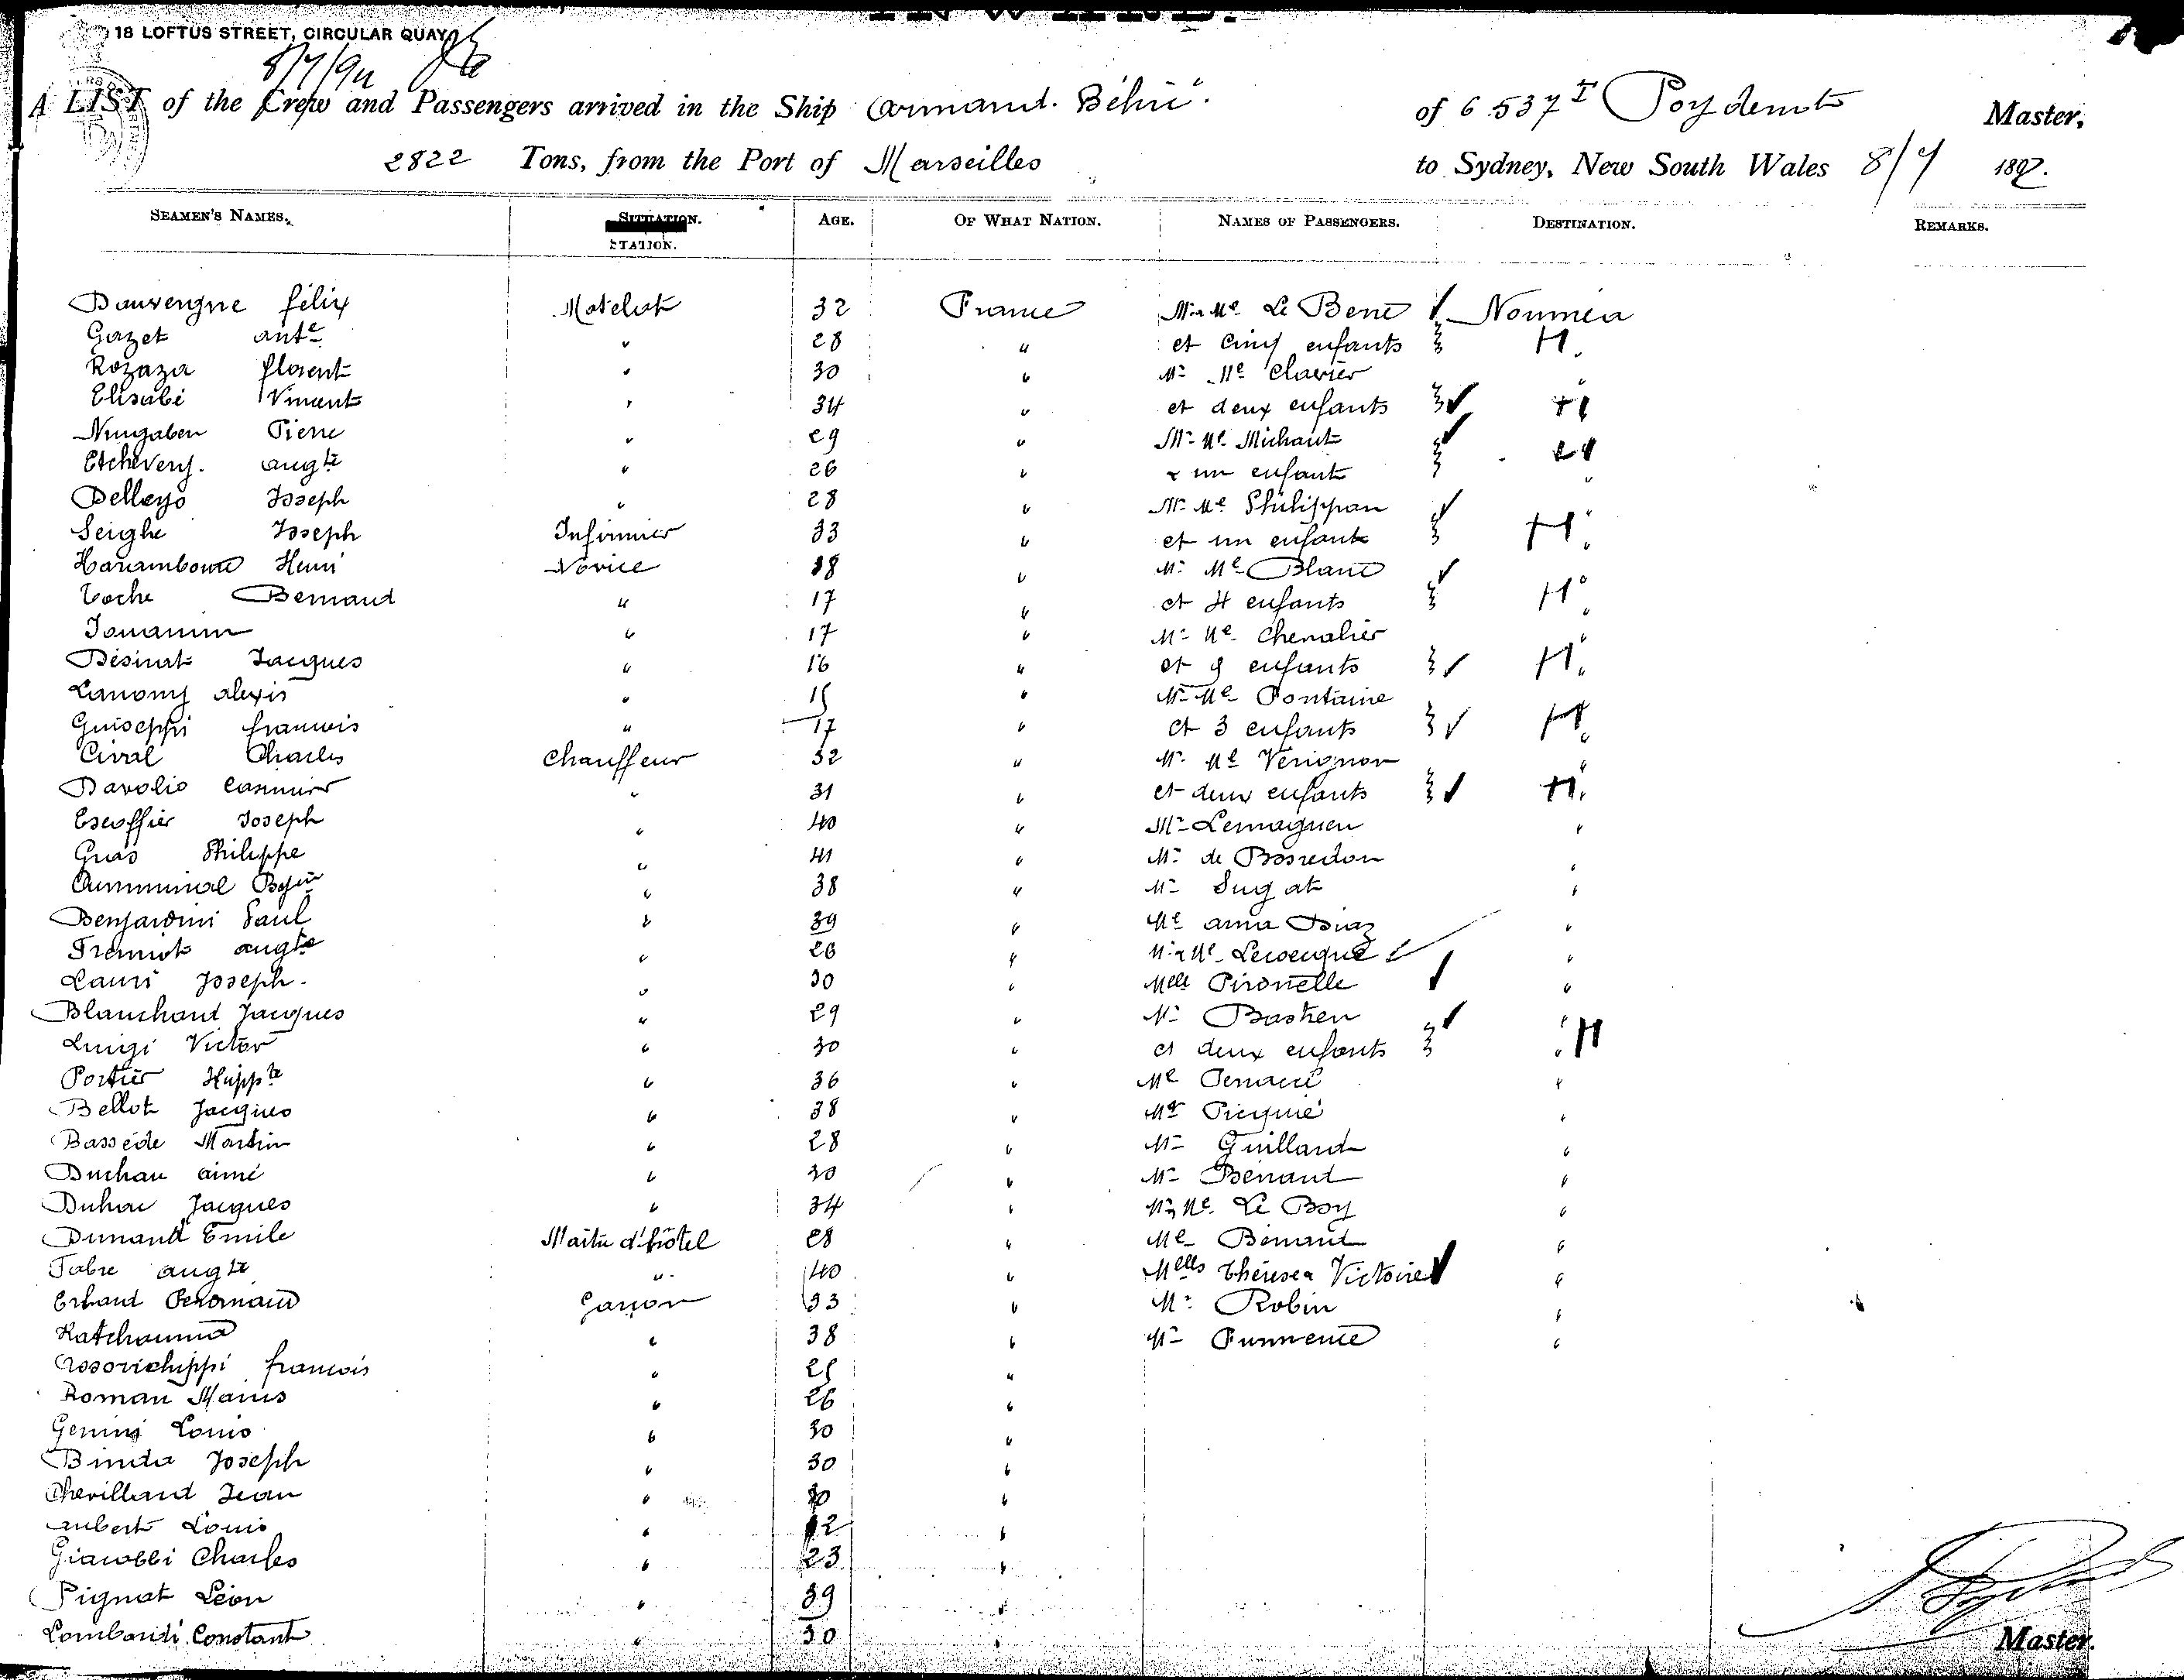 18 LOFTUS STREET, CIRCULAR QUAY
8/7/92
A LIST of the Crew and Passengers arrived in the Ship Armand. Béhic. of 6.537 T Poydenot Master,
2822 Tons, from the Port of Marseilles to Sydney, New South Wales 8/7 1892.
SEAMEN'S NAMES. STATION. AGE. OF WHAT NATION. NAMES OF PASSENGERS. DESTINATION. REMARKS.
Dauvergne félix Matelot 32 France Mr Me Le Bene Nouméa
Gazet ante " 28 " et cinq enfants
Rozaza florent " 30 " Mr Me Clavier
Elisabé Vincent " 34 " et deux enfants
Nungaben Pierre " 29 " Mr Me Michaut
Etchevery. augte " 26 " & un enfant "
Delleys Joseph " 28 " Mr Me Philippon "
Seighe Joseph Infirmier 33 " et un enfant "
Harambourd Henri Novice 18 " Mr Me Blanc "
Loche Bernard " 17 " et 4 enfants "
Jouanin " 17 " Mr Me Chevalier "
Désirat Jacques " 16 " et 9 enfants "
Lanomy alexis " 15 " Mr Me Fontaine
Guiseppi francois " 17 " et 3 enfants "
Cival Charles Chauffeur 32 " Mr Me Vérignon "
Davolio Casimir " 31 " et deux enfants "
Escoffier Joseph " 40 " Mr Lemaignen "
Gras Philippe " 41 " Mr de Bosredon "
" 38 " Mr Sugat "
Benjardini Paul " 39 " Me anna Diaz "
Tremiot augte " 26 " Mr & Me Levecque "
Lauri Joseph. " 30 " Melle Pironelle "
Blanchard Jacques " 29 " Mr Bastien "
Luigi Victor " 30 " et deux enfants "
Portier Hippte " 36 " Me "
Bellot Jacques " 38 " Mr Picquié "
Bassède Martin " 28 " Mr Guillard "
Duchau aimé " 30 " Mr Benaut "
Duhau Jacques " 34 " Mr Me. Le Boy "
Dunand Emile Maître d'hôtel 28 " Me Benaut "
Fabre augte " 40 " Melles Thérèse & Victoire "
Erhard Fernand Garçon 33 " Mr Robin "
Katchouma " 38 " Mr "
francois " 25 "
Roman Marius " 26 "
Gemini Louis " 30 "
Binda Joseph " 30 "
Chevilland Jean " 30 "
aubert Louis " "
Giacobbi Charles " 23 "
Pignat Léon " 39 "
Lombardi Constant " 30 "
Master.